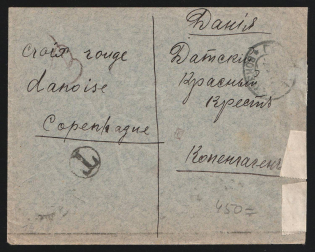 Данія
Croix rouge
danoise
Copenhague
Датскій
Красный
Крестъ
Копенгагенъ
T
450=